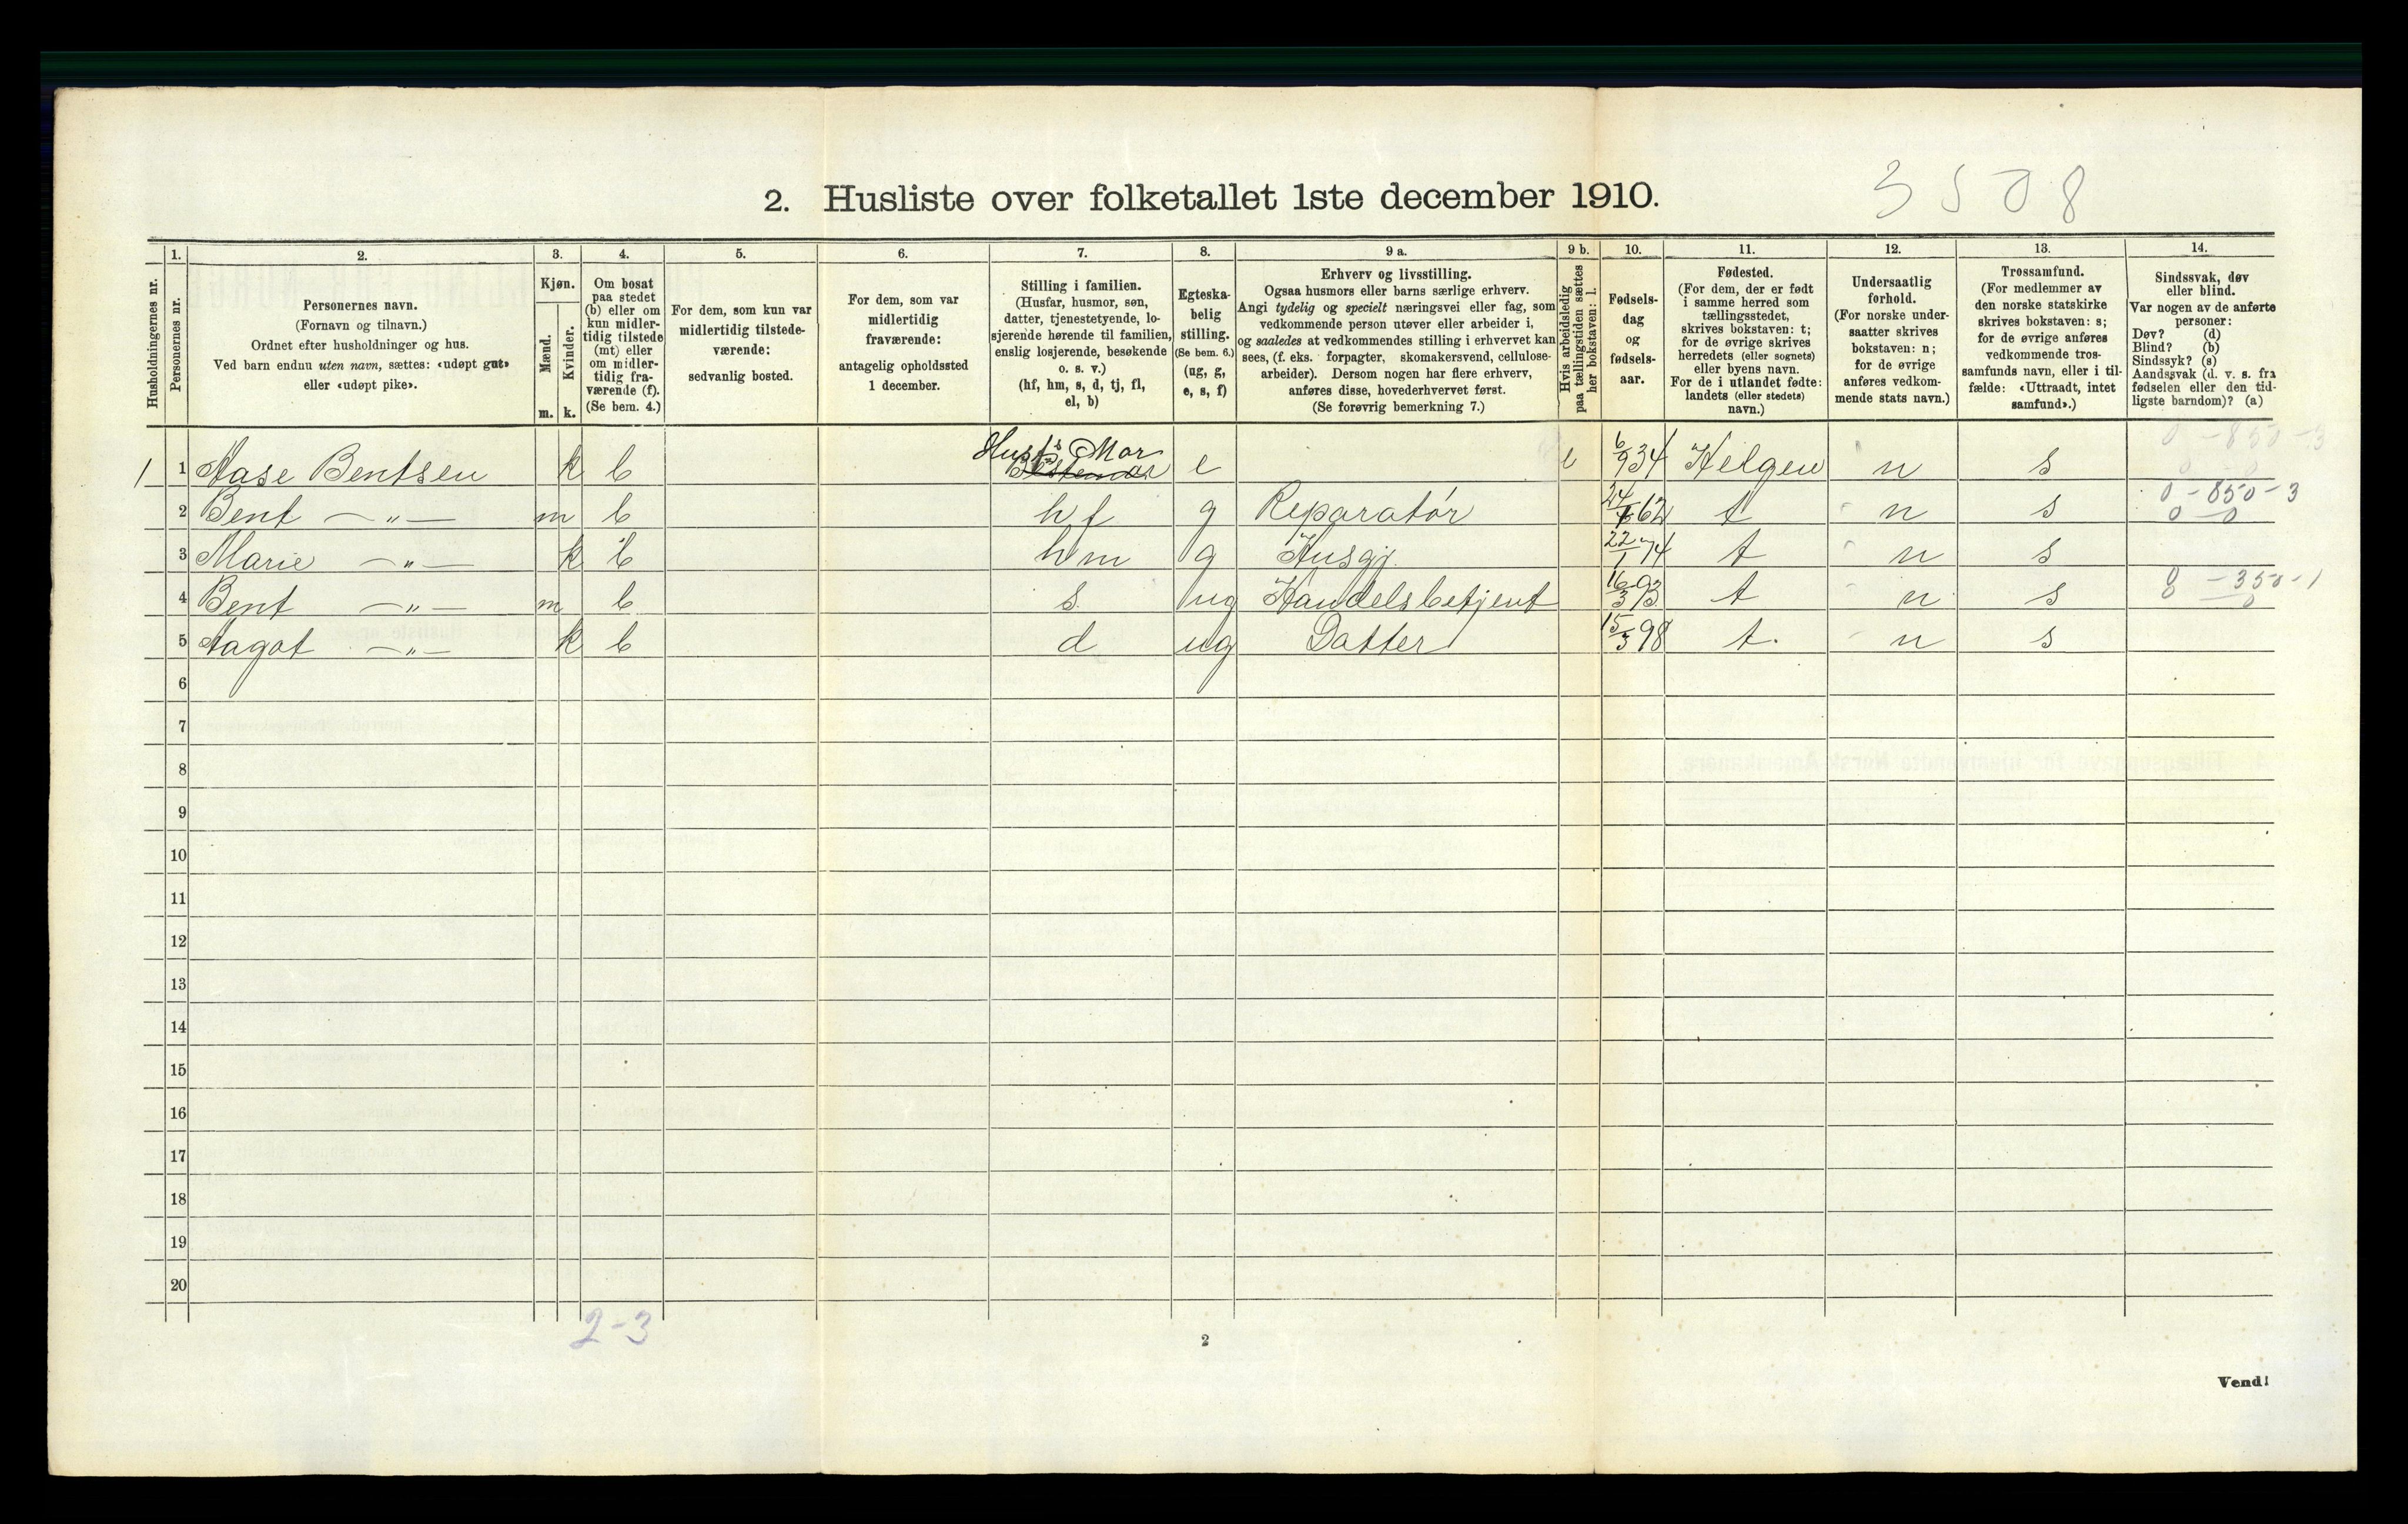 3508
2. Husliste over folketallet 1ste december 1910.
Husholdningernes nr.
1.
Personernes nr.
2.
Personernes navn.
(Fornavn og tilnavn.)
Ordnet efter husholdninger og hus.
Ved barn endnu uten navn, sættes: «udøpt gut»
eller «udøpt pike».
3.
Kjøn.
Mænd.
Kvinder.
m. k.
4.
Om bosat
paa stedet
(b) eller om
kun midler-
tidig tilstede
(mt) eller
om midler-
tidig fra-
værende (f).
(Se bem. 4.)
5.
For dem, som kun var
midlertidig tilstede-
værende:
sedvanlig bosted.
6.
For dem, som var
midlertidig
fraværende:
antagelig opholdssted
1 december.
7.
Stilling i familien.
(Husfar, husmor, søn,
datter, tjenestetyende, lo-
sjerende hørende til familien,
enslig losjerende, besøkende
o. s. v.)
(hf, hm, s, d, tj, fl,
el, b)
8.
Egteska-
belig
stilling.
(Se bem. 6.)
(ug, g,
e, s, f)
9 a.
Erhverv og livsstilling.
Ogsaa husmors eller barns særlige erhverv.
Angi tydelig og specielt næringsvei eller fag, som
vedkommende person utøver eller arbeider i,
og saaledes at vedkommendes stilling i erhvervet kan
sees, (f. eks. forpagter, skomakersvend, cellulose-
arbeider). Dersom nogen har flere erhverv,
anføres disse, hovederhvervet først.
(Se forøvrig bemerkning 7.)
9 b.
Hvis arbeidsledig
paa tællingstiden sættes
her bokstaven: l.
10.
Fødsels-
dag
og
fødsels-
aar.
11.
Fødested.
(For dem, der er født
i samme herred som
tællingsstedet,
skrives bokstaven: t;
for de øvrige skrives
herredets (eller sognets)
eller byens navn.
For de i utlandet fødte:
landets (eller stedets)
navn.)
12.
Undersaatlig
forhold.
(For norske under-
saatter skrives
bokstaven: n;
for de øvrige
anføres vedkom-
mende stats navn.)
13.
Trossamfund.
(For medlemmer av
den norske statskirke
skrives bokstaven: s;
for de øvrige anføres
vedkommende tros-
samfunds navn, eller i til-
fælde: «Uttraadt, intet
samfund».)
14.
Sindssvak, døv
eller blind.
Var nogen av de anførte
personer:
Døv? (d)
Blind? (b)
Sindssyk? (s)
Aandssvak (d. v. s. fra
fødselen eller den tid-
ligste barndom)? (a)
1 1 Aase Bentsen k b Husf's Mor Bestemor e l 6/9 34 Helgen n s 0 - 850 - 3 0 - 0
2 Bent —"— m b hf g Reparatør 62 t n s 0 - 850 - 3 0 - 0
3 Marie —"— k b hm g Husgj. 22/1 74 t n s
4 Bent —"— m b s. ug Handelsbetjent 16/3 93 t n s 0 - 350 - 1 0
5 Aagot —"— k b d ug Datter 15/3 98 t. n s
6
7
8
9
10
11
12
13
14
15
16
17
18
19
20
2-3
2
Vend!